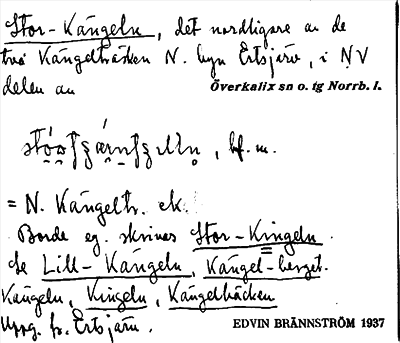 Stor-Kängeln, det nordligare av de
två Kängelträsken N. byn Ertsjärv, i NV
delen av
Överkalix sn o. tg Norrb. l.
, bf. m.
= N. Kängeltr. ek.
Borde eg. skrivas Stor-Kingeln
Se Lill-Kängeln, Kängel-berget.
Kängeln, Kingeln, Kängelbäcken
Uppg. fr. Ertsjärv.
EDVIN BRÄNNSTRÖM 1937